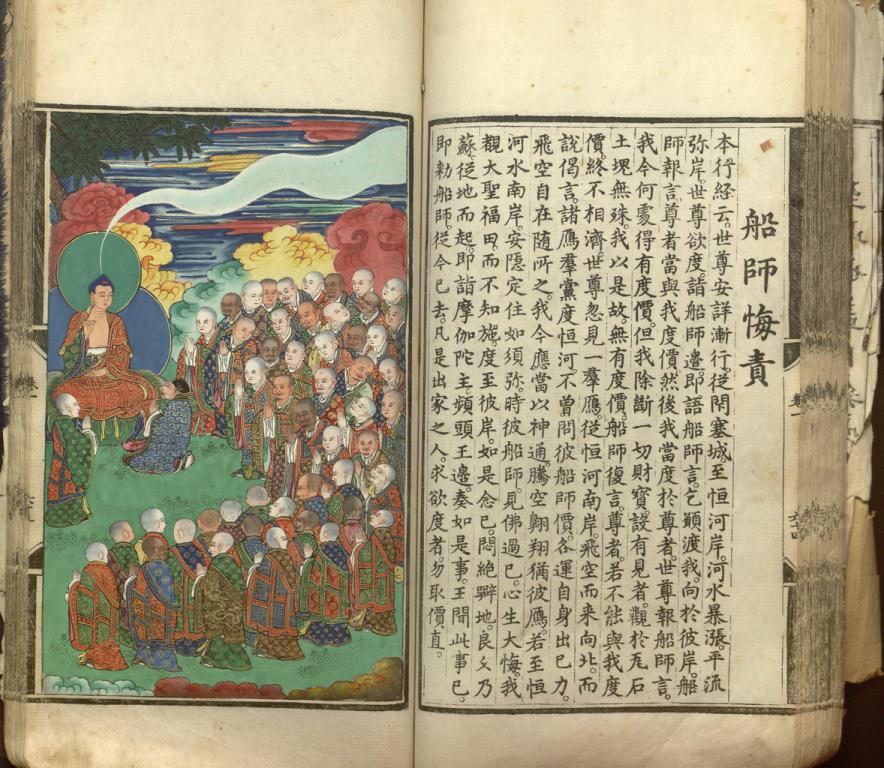 船師悔責
本行經云。世尊安詳漸行。從閇塞城至恒河岸。河水暴漲。平流
弥岸。世尊欲度。請船師邊。即語船師言。乞願渡我。向於彼岸。船
師報言。尊者當與我度價。然後我當度於尊者。世尊報船師言。
我今何處得有度價。但我除斷一切財寶。設有見者。觀於瓦石
土塊無殊。我以是故。無有度價。船師復言。尊者。若不能與我度
價。終不相濟。世尊忽見一羣鴈。從恒河南岸。飛空而来向北。而
說偈言。諸鴈羣黨度恒河。不曾問彼船師價。各運自身出已力。
飛空自在随所之。我今應當以神通。騰空翺翔猶彼鴈。若至恒
河水南岸。安隱定住如須弥。時彼船師。見佛過已。心生大悔。我
觀大聖福田。而不知施。度至彼岸。如是念已。悶絕躃地。良久乃
蘇。從地而起。即詣摩伽陀主頻頭王邊。奏如是事。王聞此事已。
即勑船師。從今已去。凡是出家之人。求欲度者。勿取價直。